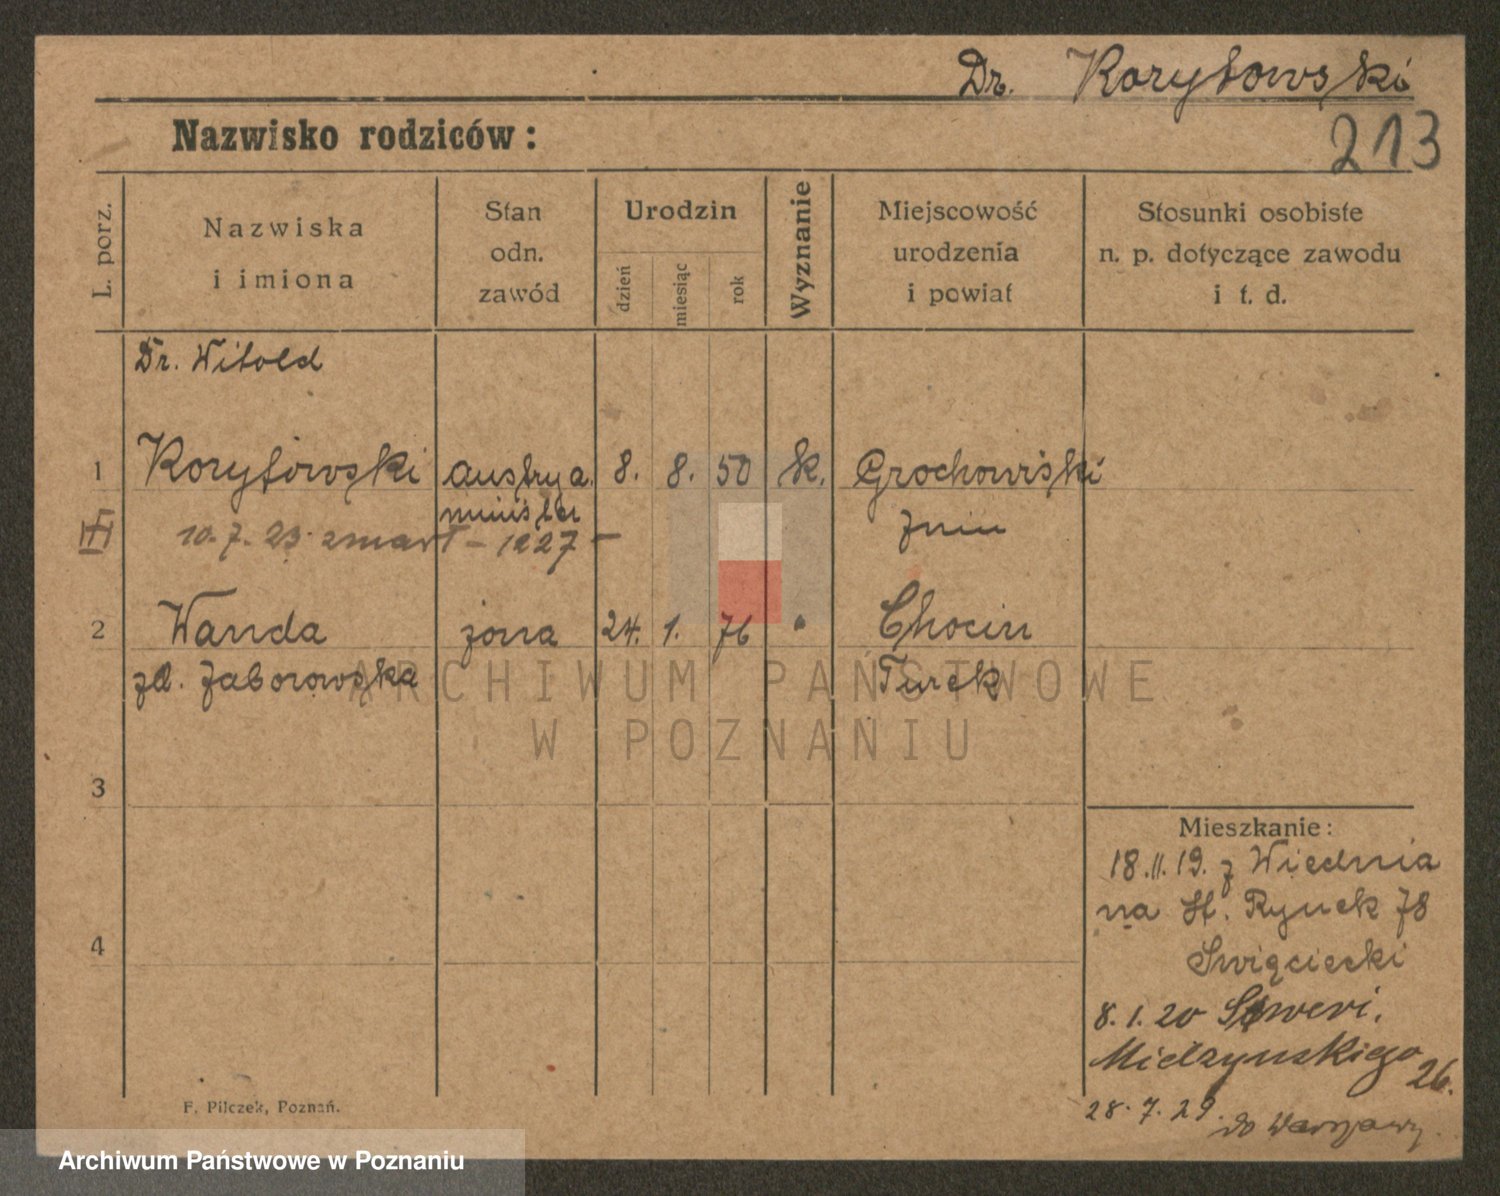 Dr. Korytowski
213
Nazwisko rodziców:
L. porz.
Nazwiska
i imiona
Stan
odn.
zawód
Urodzin
dzień
miesiąc
rok
Wyznanie
Miejscowość
urodzenia
i powiat
Stosunki osobiste
n. p. dotyczące zawodu
i t. d.
Dr. Witold
1 Korytowski austrya. 8. 8. 50 k. Grochowiski
minister Żnin
10.7.23 zmarł - 1227 -
2 Wanda żona 24. 1. 76 " Chocim
zd. Zaborowska Turek
ARCHIWUM PAŃSTWOWE
W POZNANIU
3
4
Mieszkanie:
18.11.19. z Wiednia
na St. Rynek 78
Święciecki
8.1.20 Seweri.
Mielżynskiego 26.
28.7.29. do Warszawy.
F. Pilczek, Poznań.
Archiwum Państwowe w Poznaniu